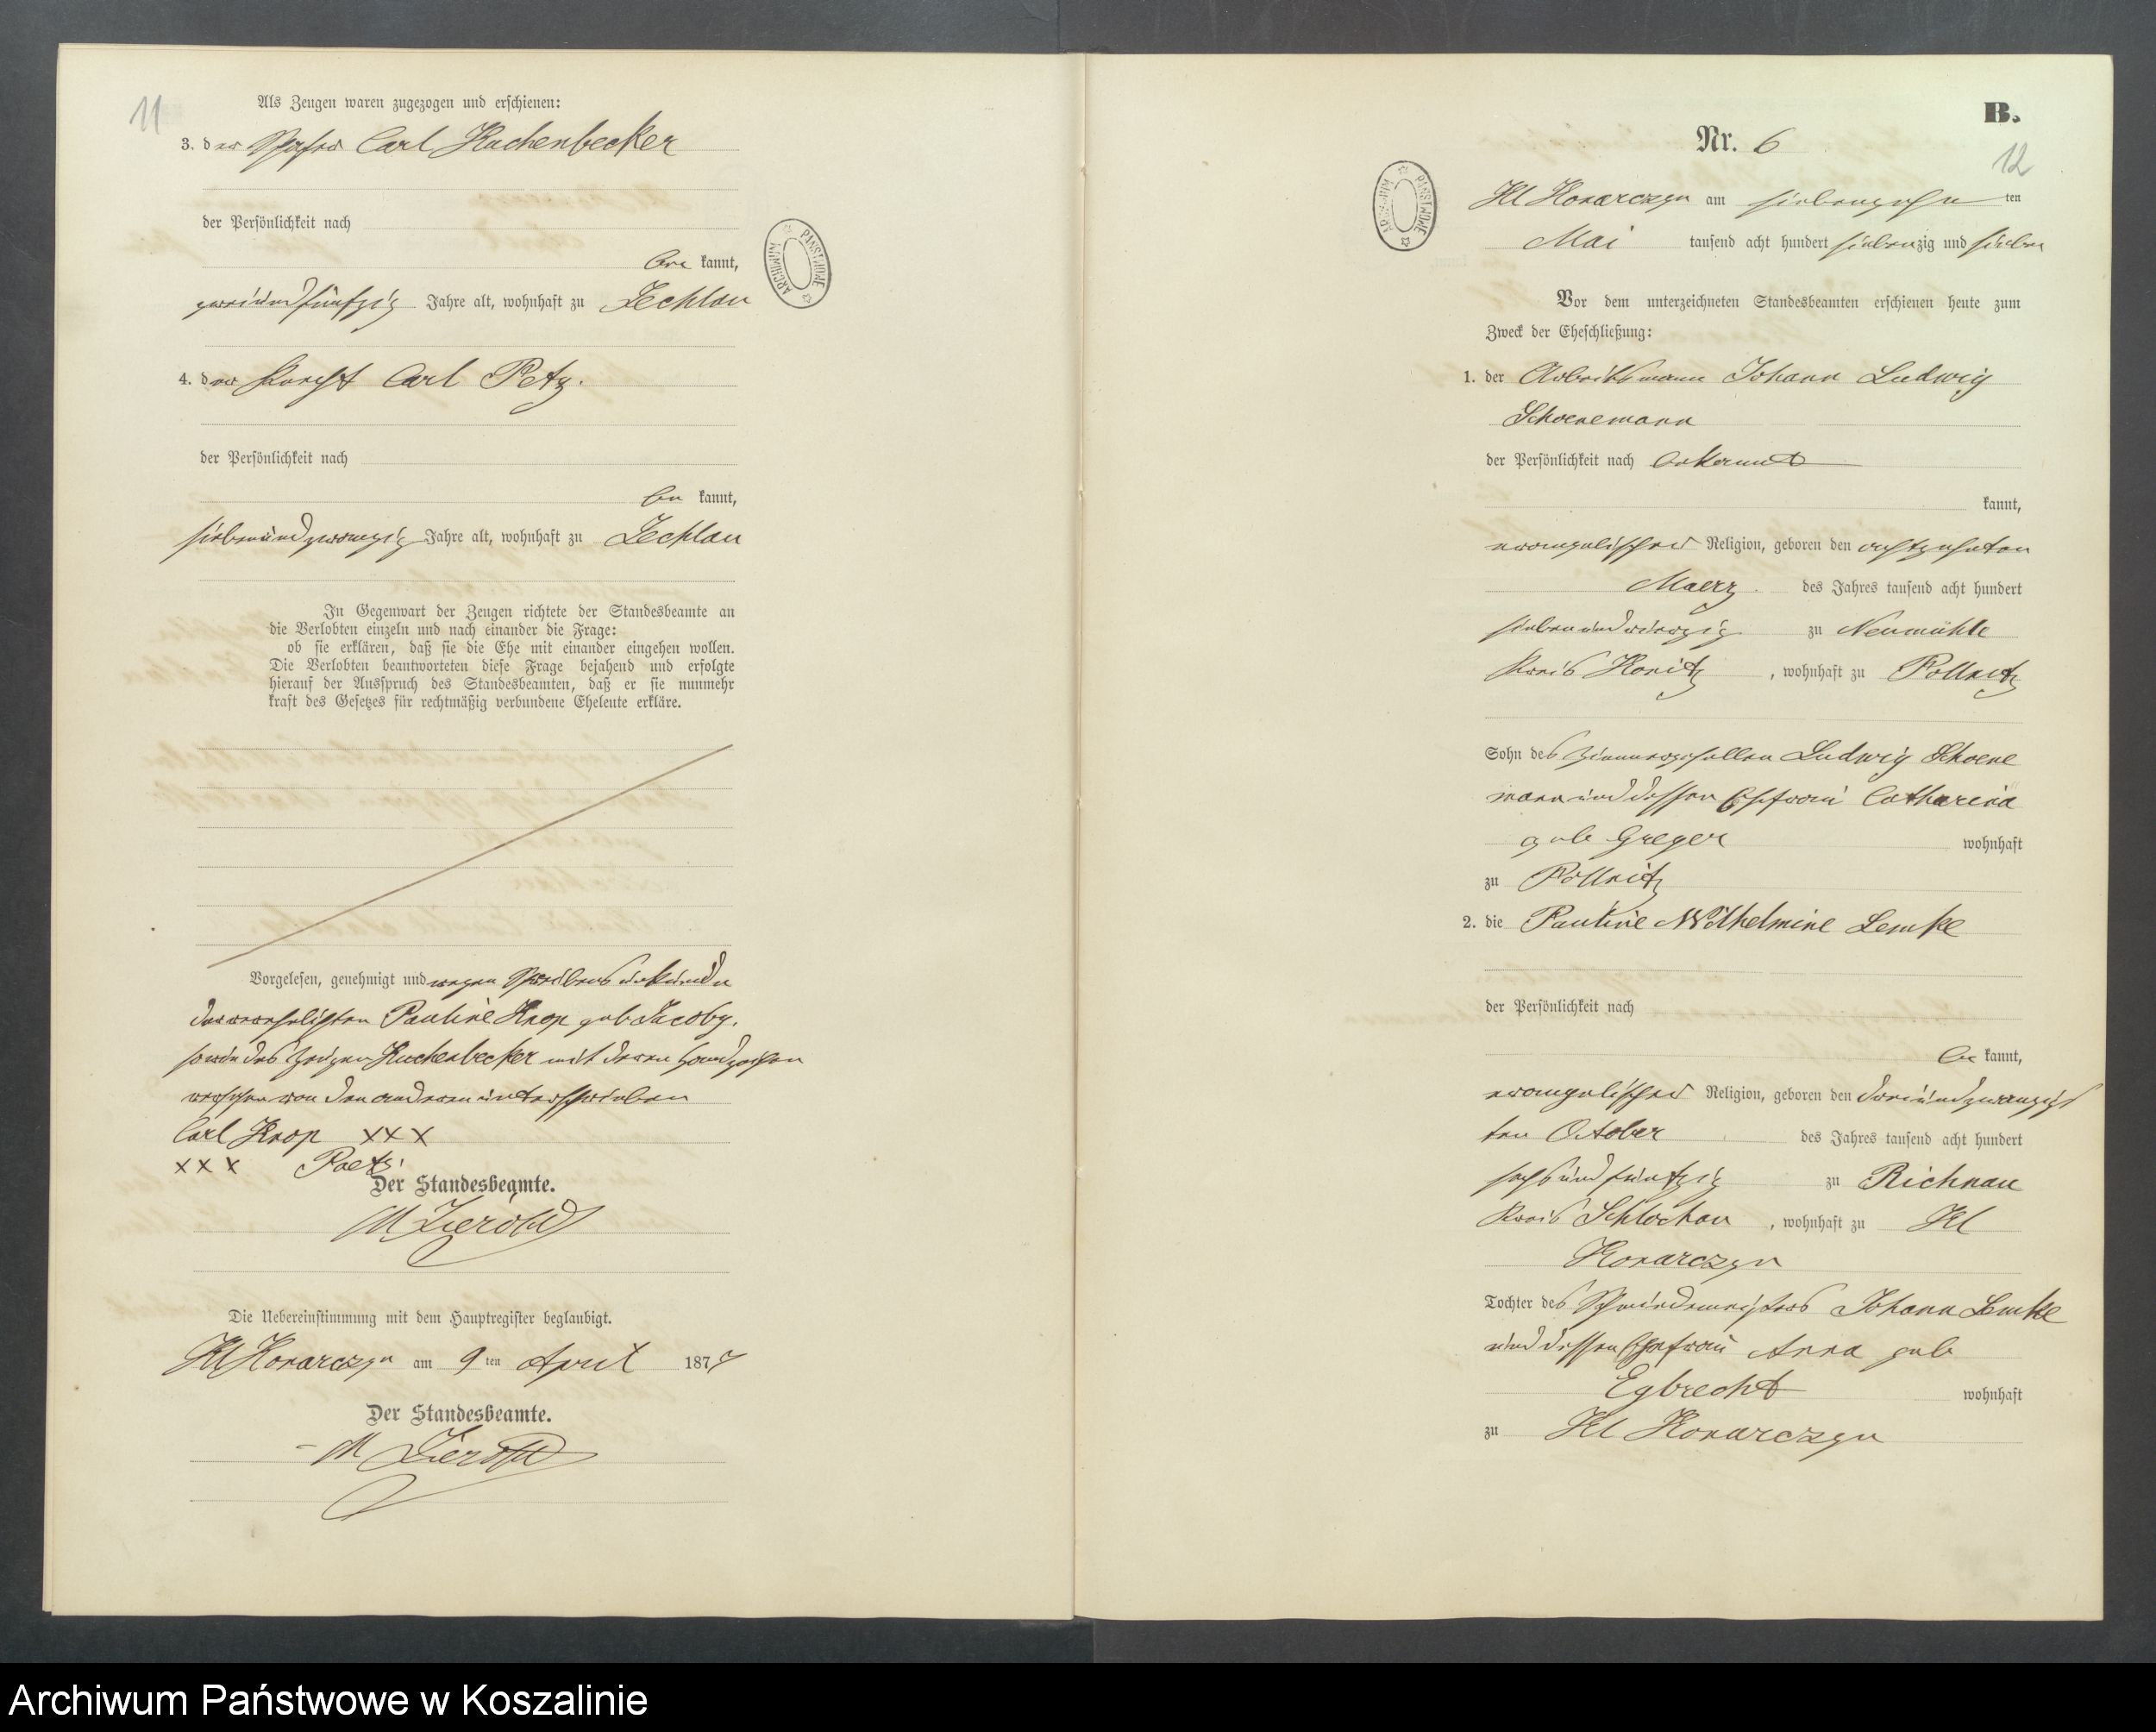 11
Als Zeugen waren zugezogen und erschienen:
3. der Schäfer Carl Kuchenbecker
der Persönlichkeit nach
be kannt,
zweiundfünfzig Jahre alt, wohnhaft zu Zechlau
4. der Knecht Carl Petz.
der Persönlichkeit nach
be kannt,
siebenundzwanzig Jahre alt, wohnhaft zu Zechlau
In Gegenwart der Zeugen richtete der Standesbeamte an
die Verlobten einzeln und nach einander die Frage:
ob sie erklären, daß sie die Ehe mit einander eingehen wollen.
Die Verlobten beantworteten diese Frage bejahend und erfolgte
hierauf der Ausspruch des Standesbeamten, daß er sie nunmehr
kraft des Gesetzes für rechtmäßig verbundene Eheleute erkläre.
Vorgelesen, genehmigt und wegen Schreibensunkunde
der verehelichten Pauline Knop geb Jacoby.
sowie des Zeugen Kuchenbecker mit deren Handzeichen
versehen von den anderen unterschrieben
Carl Knop XXX
XXX Paetz
Der Standesbeamte.
M Zierold
Die Uebereinstimmung mit dem Hauptregister beglaubigt.
Kl Konarczyn am 9 ten April 1877
Der Standesbeamte.
M Zierold
ARCHIWUM PAŃSTWOWE
B.
Nr. 6
12
ARCHIWUM PAŃSTWOWE
Kl Konarczyn am siebenzehn ten
Mai tausend acht hundert siebenzig und sieben
Vor dem unterzeichneten Standesbeamten erschienen heute zum
Zweck der Eheschließung:
1. der Arbeitsmann Johann Ludwig
Schoenemann
der Persönlichkeit nach bekannt
kannt,
evangelischer Religion, geboren den achtzehnten
Maerz des Jahres tausend acht hundert
siebenundvierzig zu Neumühle
Kreis Konitz, wohnhaft zu Pollnitz
Sohn des Zimmergesellen Ludwig Schoene
mann und dessen Ehefrau Catharina
geb Greger wohnhaft
zu Pollnitz
2. die Pauline Wilhelmine Lemke
der Persönlichkeit nach
be kannt,
evangelischer Religion, geboren den dreiundzwanzigs
ten October des Jahres tausend acht hundert
sechsundfünfzig zu Richnau
Kreis Schlochau, wohnhaft zu Kl
Konarczyn
Tochter des Schmiedemeisters Johann Lemke
und dessen Ehefrau Anna geb
Egbrecht wohnhaft
zu Kl Konarczyn
Archiwum Państwowe w Koszalinie